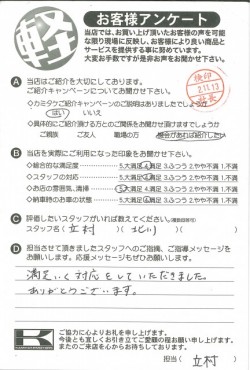 軽
お客様アンケート
当店では、お買い上げ頂いたお客様の声を可能
な限り現場に反映し、お客様により良い商品と
サービスを提供する事に努めています。
大変お手数ですが是非お声をお聞かせ下さい。
検印
2.11.13
A 当店はご紹介を大切にしております。
ご紹介キャンペーンについてお聞かせ下さい。
◇カミタケご紹介キャンペーンのご説明はありましたでしょうか。
はい いいえ
◇具体的にご紹介頂ける方とのご関係をお聞かせ頂けますでしょうか
ご親族 ご友人 職場の方 機会があれば紹介したい
B 当店を実際にご利用になった印象をお聞かせ下さい。
◇総合的な満足度 5.大満足 4.満足 3.ふつう 2.やや不満 1.不満
◇スタッフの対応 5.大満足 4.満足 3.ふつう 2.やや不満 1.不満
◇お店の雰囲気、清掃 5.大満足 4.満足 3.ふつう 2.やや不満 1.不満
◇納車時のお車の状態 5.大満足 4.満足 3.ふつう 2.やや不満 1.不満
C 評価したいスタッフがいれば教えてください。(複数回答可)
スタッフ名( 立村 )( 北川 )
D 担当させて頂きましたスタッフへのご指摘、ご指導メッセージを
お願いします。応援メッセージもぜひお願いします。
満足いく対応をしていただきました。
ありがとうございます。
K
ご協力に心よりお礼を申し上げます。
今後とも宜しくお引き立てご愛顧の程お願い申し上げます。
またのご来店を心からお待ちしております。
担当( 立村 )